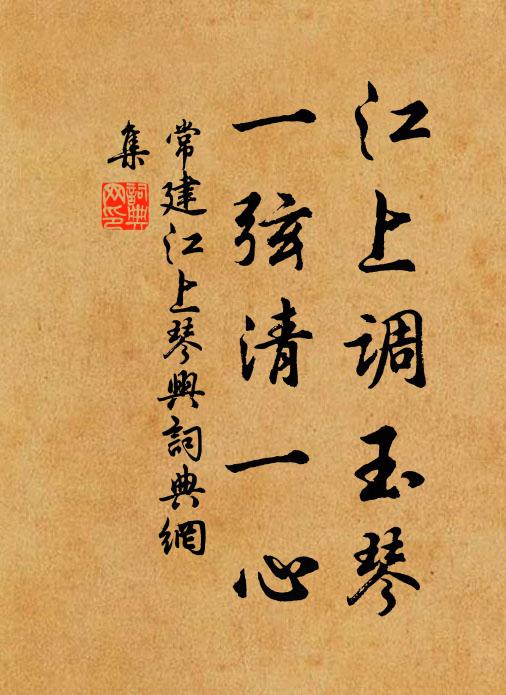 江上调玉琴
一弦清一心
常建江上琴興詞典網
集
詞典網印